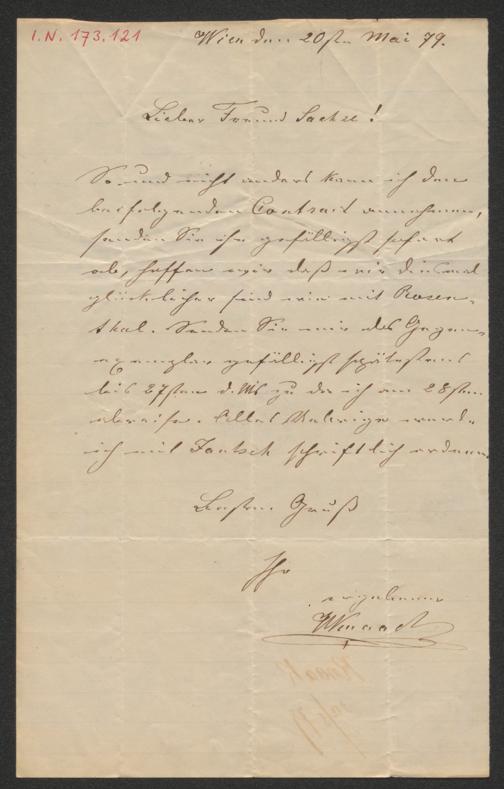 I.N. 173.121
Wien den 20ten Mai 79.
Lieber Freund Sachse!
So und nicht anders kann ich den
beifolgenden Contract annehmen,
senden Sie ihn gefälligst sofort
ab, hoffen wir daß wir diesmal
glücklicher sind wie mit Rosen-
thal. Senden Sie mir das Gegen-
exemplar gefälligst spätestens
bis 27sten d. Mts zu da ich am 28sten
abreise. Alles Uebrige werde
ich mit Jantsch schriftlich ordnen.
Besten Gruß
Ihr
ergebener
WKnaack
Knaak
20/5 79